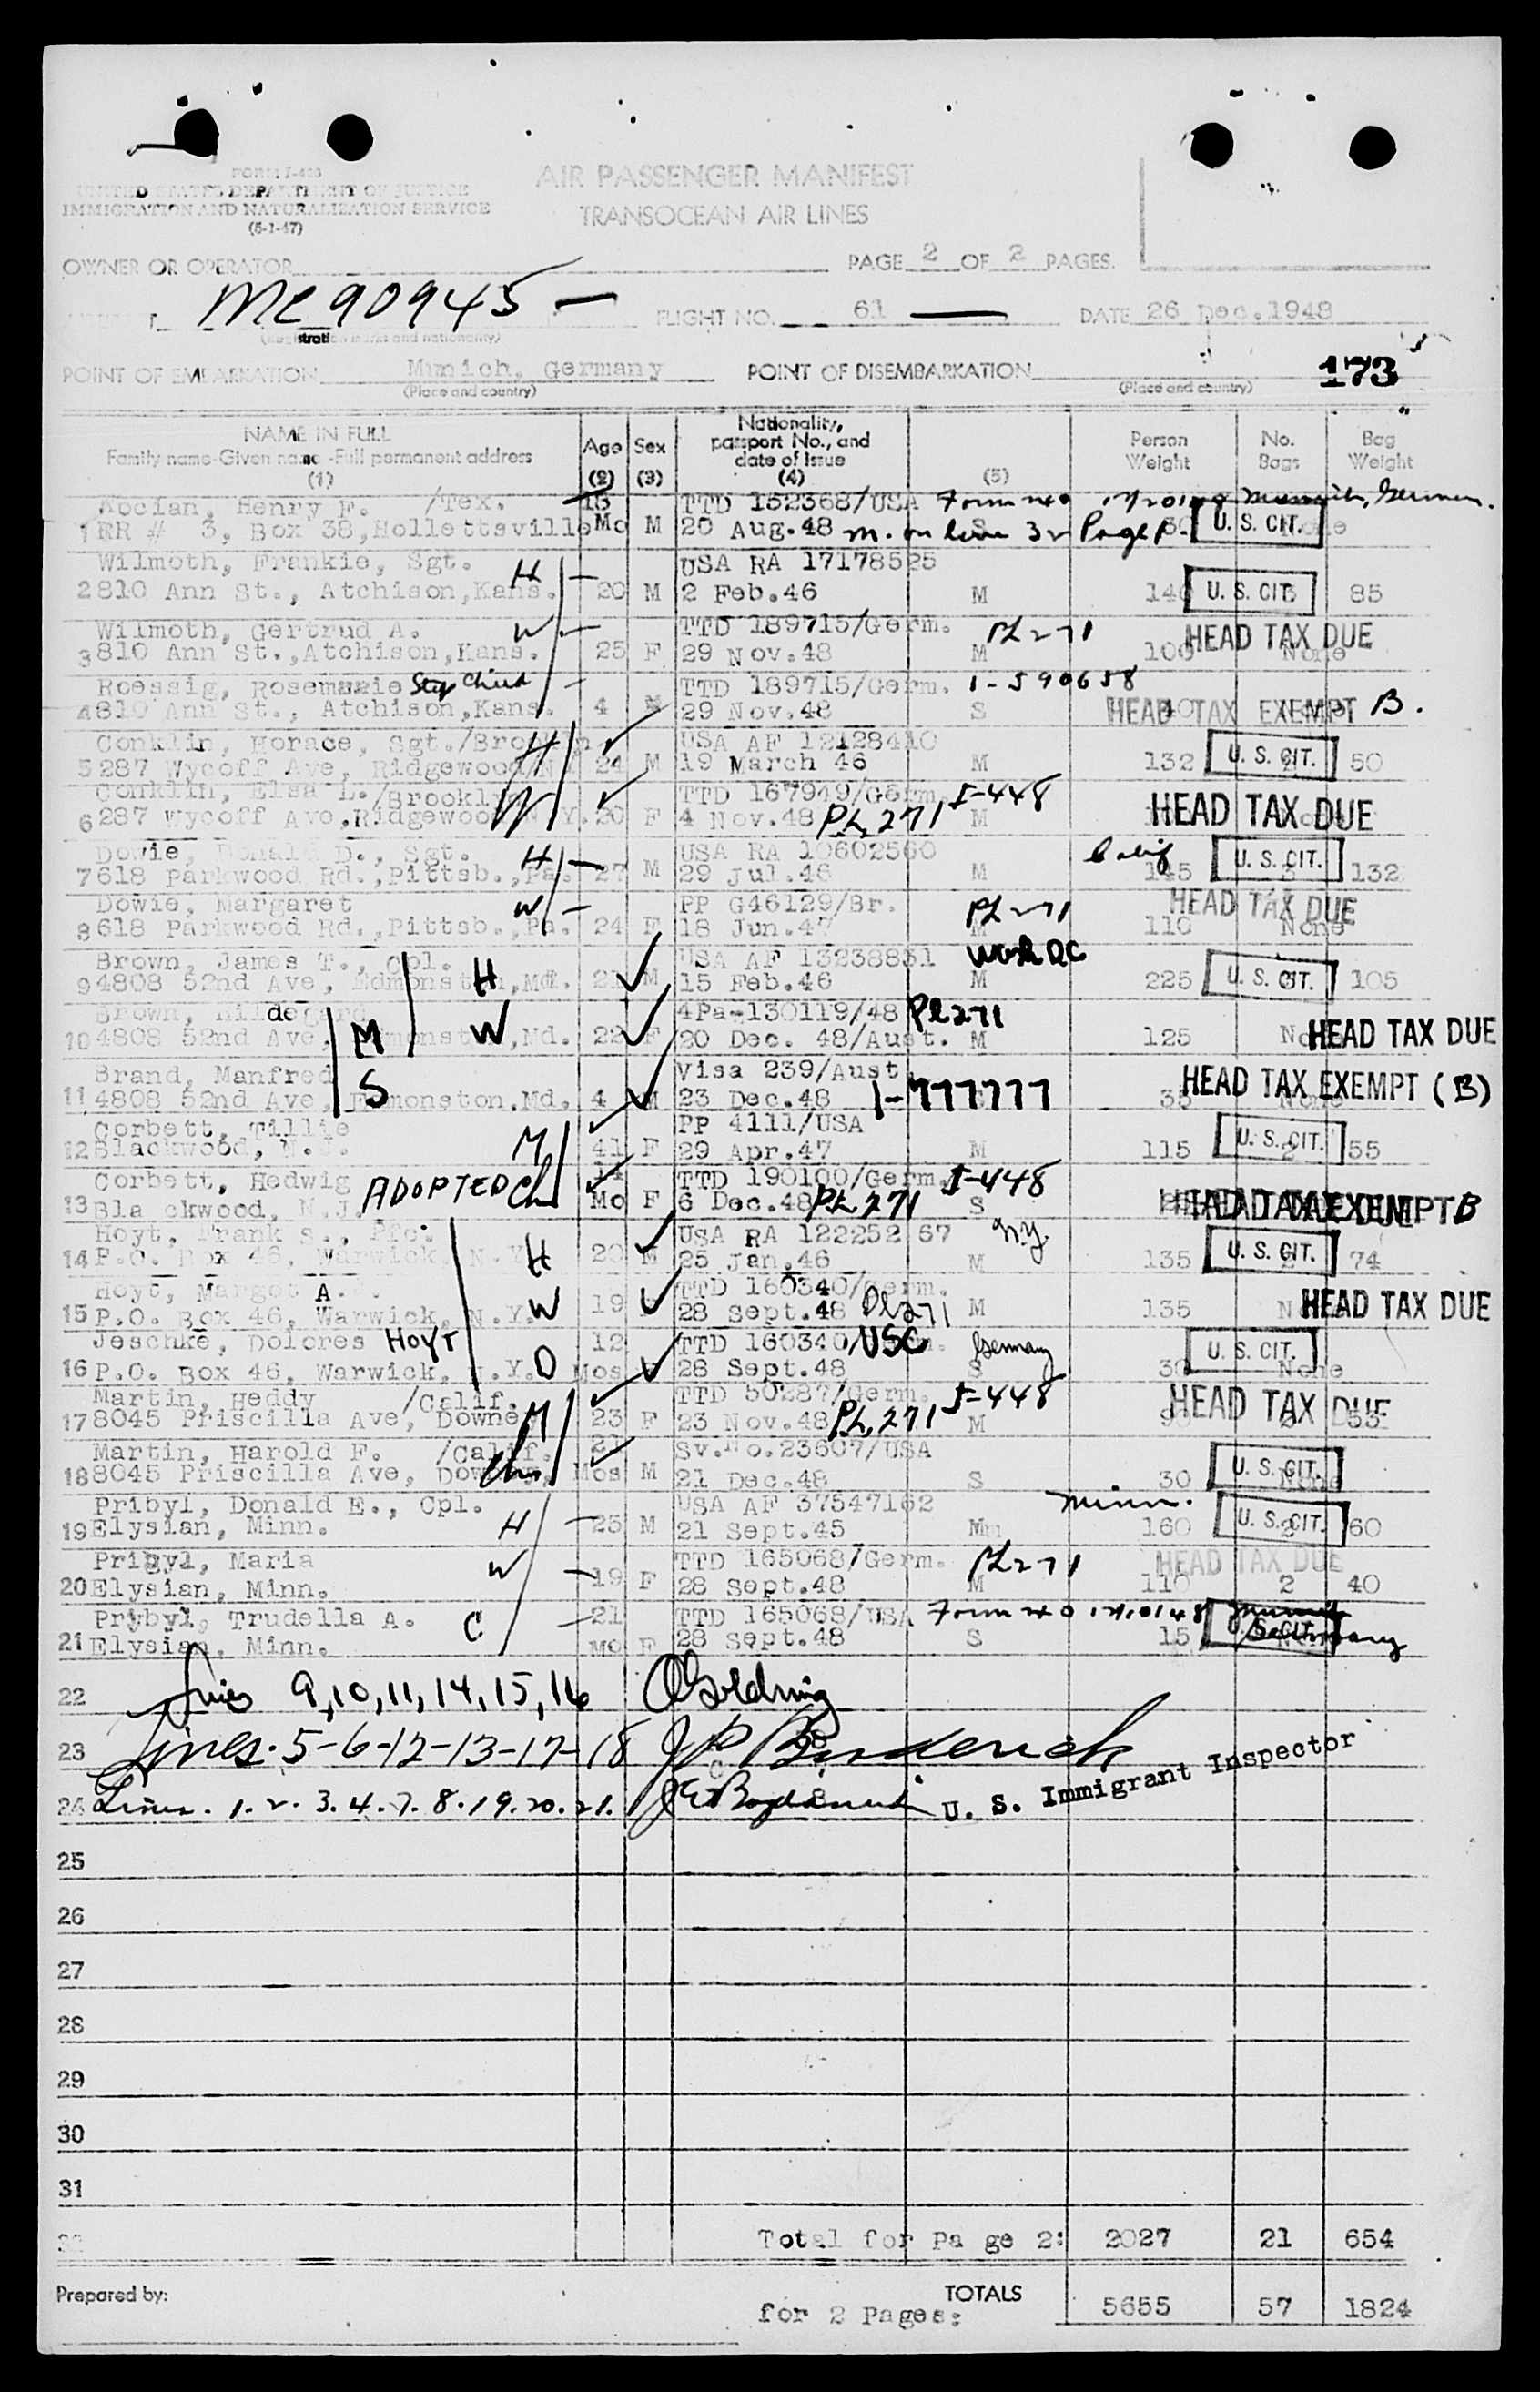 FORM I-423
UNITED STATES DEPARTMENT OF JUSTICE
IMMIGRATION AND NATURALIZATION SERVICE
(5-1-47)
AIR PASSENGER MANIFEST
TRANSOCEAN AIR LINES
OWNER OR OPERATOR
PAGE 2 OF 2 PAGES.
NC 90945 —
FLIGHT NO. 61 —
DATE 26 Dec.1948
(Registration marks and nationality)
POINT OF EMBARKATION Munich, Germany
POINT OF DISEMBARKATION
173
(Place and country) (Place and country)
NAME IN FULL
Family name-Given name-Full permanent address
(1)
Age
(2)
Sex
(3)
Nationality, passport No., and date of Issue
(4)
(5)
Person Weight
No. Bags
Bag Weight
Kocian, Henry F. /Tex. 18 TTD 152368/USA Form Munich, German.
1 RR # 3, Box 38, Hollettsville Mo M 20 Aug.48 S m. on line 32 Page 1. 30 U. S. CIT. None
Wilmoth, Frankie, Sgt. H USA RA 17178525
2 810 Ann St., Atchison,Kans. 20 M 2 Feb.46 M 140 U. S. CIT. 3 85
Wilmoth, Gertrud A. W TTD 189715/Germ. PL 271 HEAD TAX DUE
3 810 Ann St.,Atchison,Kans. 25 F 29 Nov.48 M 100 None
Roessig, Rosemarie Step Child TTD 189715/Germ. 1-590658
4 810 Ann St., Atchison,Kans. 4 29 Nov.48 S 40 HEAD TAX EXEMPT B.
Conklin, Horace, Sgt./Brooklyn H USA AF 12128410
5 287 Wycoff Ave, Ridgewood N 24 M 19 March 46 M 132 U. S. CIT. 50
Conklin, Elsa L./Brookly W TTD 167949/Germ. I-448
6 287 Wycoff Ave,Ridgewood N.Y. 20 F 4 Nov.48 PL 271 M HEAD TAX DUE
Dowie, Donald D., Sgt. H USA RA 10602560 Calif
7 618 Parkwood Rd.,Pittsb.,Pa. 27 M 29 Jul.46 M 145 U. S. CIT. 3 132
Dowie, Margaret W PP G46129/Br. PL 271 HEAD TAX DUE
8 618 Parkwood Rd.,Pittsb.,Pa. 24 F 18 Jun.47 M 110 None
Brown, James T., Cpl. H USA AF 13238831 Wash DC
9 4808 52nd Ave, Edmonston,Md. 21 M 15 Feb.46 M 225 U. S. CIT. 105
Brown, Hildegard W 4Pa-130119/48 PL 271
10 4808 52nd Ave, M Edmonston,Md. 22 F 20 Dec. 48/Aust. M 125 None HEAD TAX DUE
Brand, Manfred S Visa 239/Aust HEAD TAX EXEMPT (B)
11 4808 52nd Ave, Edmonston,Md. 4 M 23 Dec.48 1-777777 35 None
Corbett, Tillie M PP 4111/USA
12 Blackwood, N.J. 41 F 29 Apr.47 M 115 U. S. CIT. 2 55
Corbett, Hedwig ADOPTED Ch 14 TTD 190100/Germ. I-448
13 Bla ckwood, N.J. Mo F 6 Dec.48 PL 271 S HEAD TAX EXEMPT B
Hoyt, Frank S., Pfc. H USA RA 122252 67 N.Y.
14 P.O. Box 46, Warwick, N.Y. 20 M 25 Jan.46 M 135 U. S. CIT. 2 74
Hoyt, Margot A. W TTD 160340/Germ.
15 P.O. Box 46, Warwick, N.Y. 19 28 Sept.48 PL 271 M 135 None HEAD TAX DUE
Jeschke, Dolores HOYT 12 TTD 160340/ USC Germany
16 P.O. Box 46, Warwick, N.Y. D Mos F 28 Sept.48 S 30 U. S. CIT. None
Martin, Heddy /Calif. M TTD 50287/Germ. I-448
17 8045 Priscilla Ave, Downey 23 F 23 Nov.48 PL. 271 M 90 HEAD TAX DUE 53
Martin, Harold F. /Calif. Ch. 21 Sv.No.23607/USA
18 8045 Priscilla Ave, Downey, Mos M 21 Dec.48 S 30 U. S. CIT. None
Pribyl, Donald E., Cpl. H USA AF 37547162 Minn.
19 Elysian, Minn. 25 M 21 Sept.45 M 160 U. S. CIT. 2 60
Pribyl, Maria W TTD 165068/Germ. PL 271 HEAD TAX DUE
20 Elysian, Minn. 19 F 28 Sept.48 M 110 2 40
Pribyl, Trudella A. C 21 TTD 165068/USA Form 240 Munich
21 Elysian, Minn. Mo F 28 Sept.48 S 15 U. S. CIT. Germany
22 Lines 9,10,11,14,15,16 Goldring
23 Lines. 5-6-12-13-17-18 J P Broderick
24 Lines. 1. 2. 3. 4. 7. 8. 19. 20. 21. U. S. Immigrant Inspector
25
26
27
28
29
30
31
32 Total for Pa ge 2: 2027 21 654
Prepared by: TOTALS
for 2 Pages: 5655 57 1824